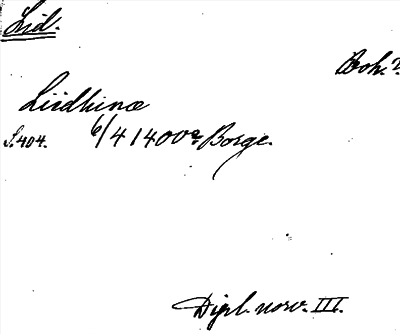 Lid.
Boh. 2.
Liidhinæ
S. 404. 6/4 1400 Borge.
Dipl. norv. III.